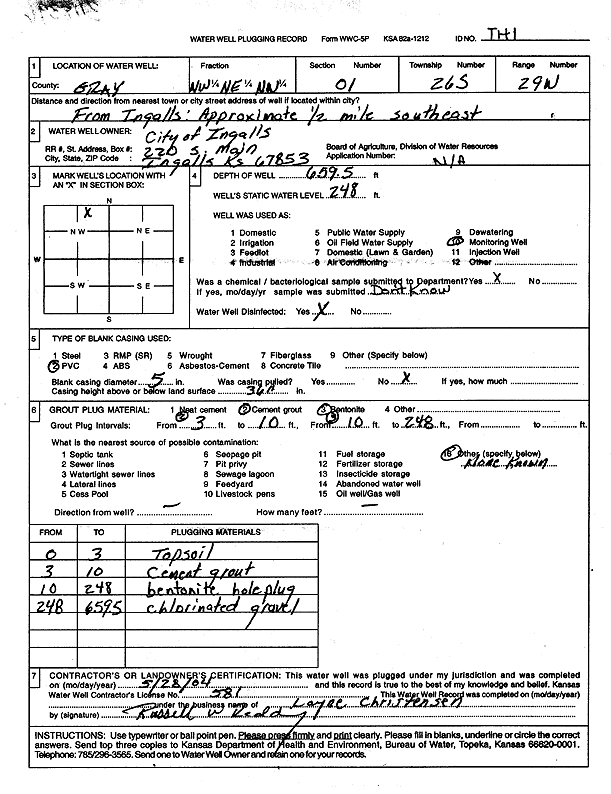 WATER WELL PLUGGING RECORD Form WWC-5P KSA 82a-1212 ID NO. TH1
1 LOCATION OF WATER WELL: Fraction Section Number Township Number Range Number
County: GRAY NW¼ NE¼ NW¼ 01 26S 29W
Distance and direction from nearest town or city street address of well if located within city?
From Ingalls: Approximate 1/2 mile southeast
2 WATER WELL OWNER: City of Ingalls
RR #, St. Address, Box #: 220 S. Main Board of Agriculture, Division of Water Resources
City, State, ZIP Code : Ingalls Ks 67853 Application Number: N/A
3 MARK WELL'S LOCATION WITH AN "X" IN SECTION BOX:
N
X
NW NE
W E
SW SE
S
4 DEPTH OF WELL 659.5 ft
WELL'S STATIC WATER LEVEL 248 ft
WELL WAS USED AS:
1 Domestic 5 Public Water Supply 9 Dewatering
2 Irrigation 6 Oil Field Water Supply 10 Monitoring Well
3 Feedlot 7 Domestic (Lawn & Garden) 11 Injection Well
4 Industrial 8 Air Conditioning 12 Other
Was a chemical / bacteriological sample submitted to Department? Yes X No
If yes, mo/day/yr sample was submitted Dont Know
Water Well Disinfected: Yes X No
5 TYPE OF BLANK CASING USED:
1 Steel 3 RMP (SR) 5 Wrought 7 Fiberglass 9 Other (Specify below)
2 PVC 4 ABS 6 Asbestos-Cement 8 Concrete Tile
Blank casing diameter 5 in. Was casing pulled? Yes No X If yes, how much
Casing height above or below land surface in.
6 GROUT PLUG MATERIAL: 1 Neat cement 2 Cement grout 3 Bentonite 4 Other
Grout Plug Intervals: From 3 ft. to 10 ft., From 10 ft. to 248 ft., From to ft.
What is the nearest source of possible contamination:
1 Septic tank 6 Seepage pit 11 Fuel storage 16 Other (specify below)
2 Sewer lines 7 Pit privy 12 Fertilizer storage None Known
3 Watertight sewer lines 8 Sewage lagoon 13 Insecticide storage
4 Lateral lines 9 Feedyard 14 Abandoned water well
5 Cess Pool 10 Livestock pens 15 Oil well/Gas well
Direction from well? — How many feet? —
FROM TO PLUGGING MATERIALS
0 3 Topsoil
3 10 Cement grout
10 248 bentonite hole plug
248 659.5 chlorinated gravel
7 CONTRACTOR'S OR LANDOWNER'S CERTIFICATION: This water well was plugged under my jurisdiction and was completed
on (mo/day/year) 5/28/04 and this record is true to the best of my knowledge and belief. Kansas
Water Well Contractor's License No. 581 This Water Well Record was completed on (mo/day/year)
under the business name of Layne Christensen
by (signature) Russell W
INSTRUCTIONS: Use typewriter or ball point pen. Please press firmly and print clearly. Please fill in blanks, underline or circle the correct
answers. Send top three copies to Kansas Department of Health and Environment, Bureau of Water, Topeka, Kansas 66620-0001.
Telephone: 785/296-3565. Send one to Water Well Owner and retain one for your records.